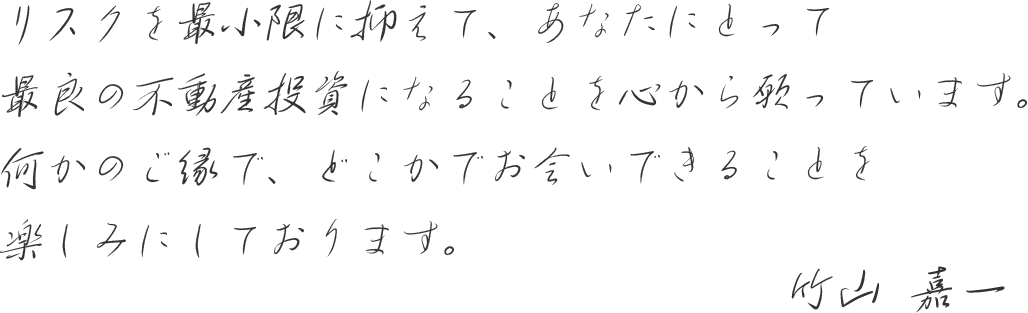 リスクを最小限に抑えて、あなたにとって
最良の不動産投資になることを心から願っています。
何かのご縁で、どこかでお会いできることを
楽しみにしております。
竹山 嘉一